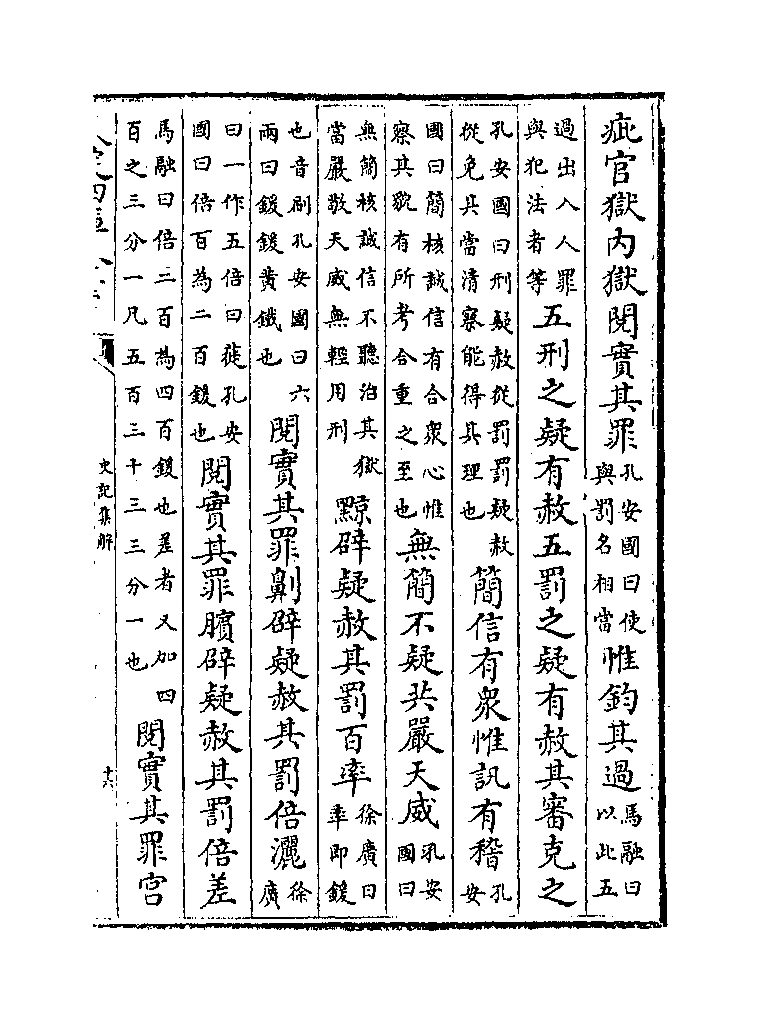 疵官獄内獄閱實其罪孔安國曰使與罰名相當惟鈞其過馬融曰以此五
過出入人罪與犯法者等五刑之疑有赦五罰之疑有赦其審克之
孔安國曰刑疑赦從罰罰疑赦從免其當清察能得其理也簡信有衆惟訊有稽孔安
國曰簡核誠信有合衆心惟察其貌有所考合重之至也無簡不疑共嚴天威孔安國曰
無簡核誠信不聽治其獄當嚴敬天威無輕用刑黥辟疑赦其罰百率徐廣曰率即鍰
也音刷孔安國曰六兩曰鍰鍰黄鐵也閱實其罪劓辟疑赦其罰倍灑徐廣
曰一作五倍曰蓰孔安國曰倍百為二百鍰也閱實其罪臏辟疑赦其罰倍差
馬融曰倍二百為四百鍰也差者又加四百之三分一凡五百三十三三分一也閱實其罪宫
史記集解
十六